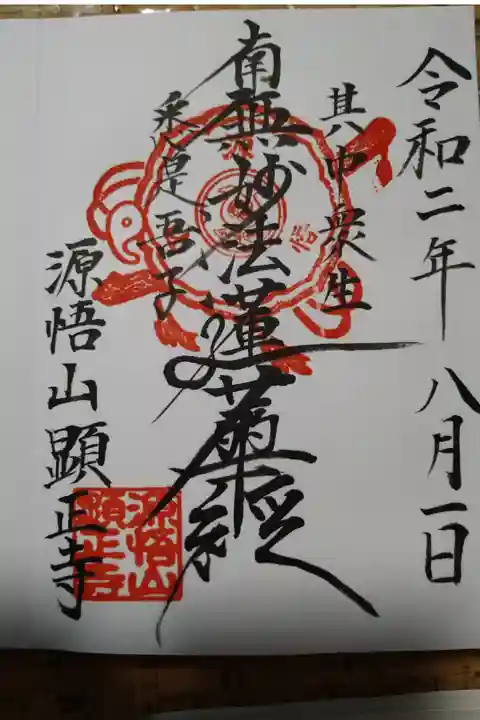 令和二年 八月一日
其中衆生
南無妙法蓮華経
悉是吾子
源悟山顕正寺
悟
源悟山
顕正寺